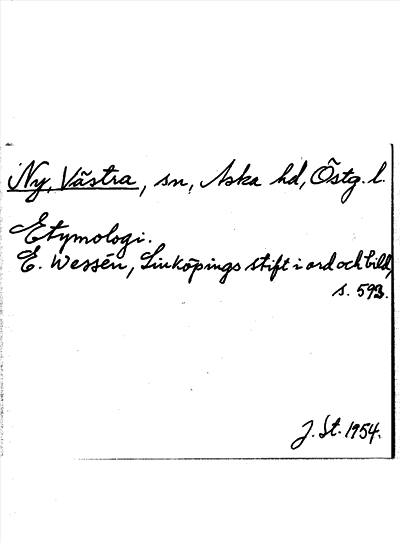 Ny, Västra, sn, Aska hd, Östg. l.
Etymologi.
E. Wessén, Linköpings stift i ord och bild,
s. 593.
J. St. 1954.